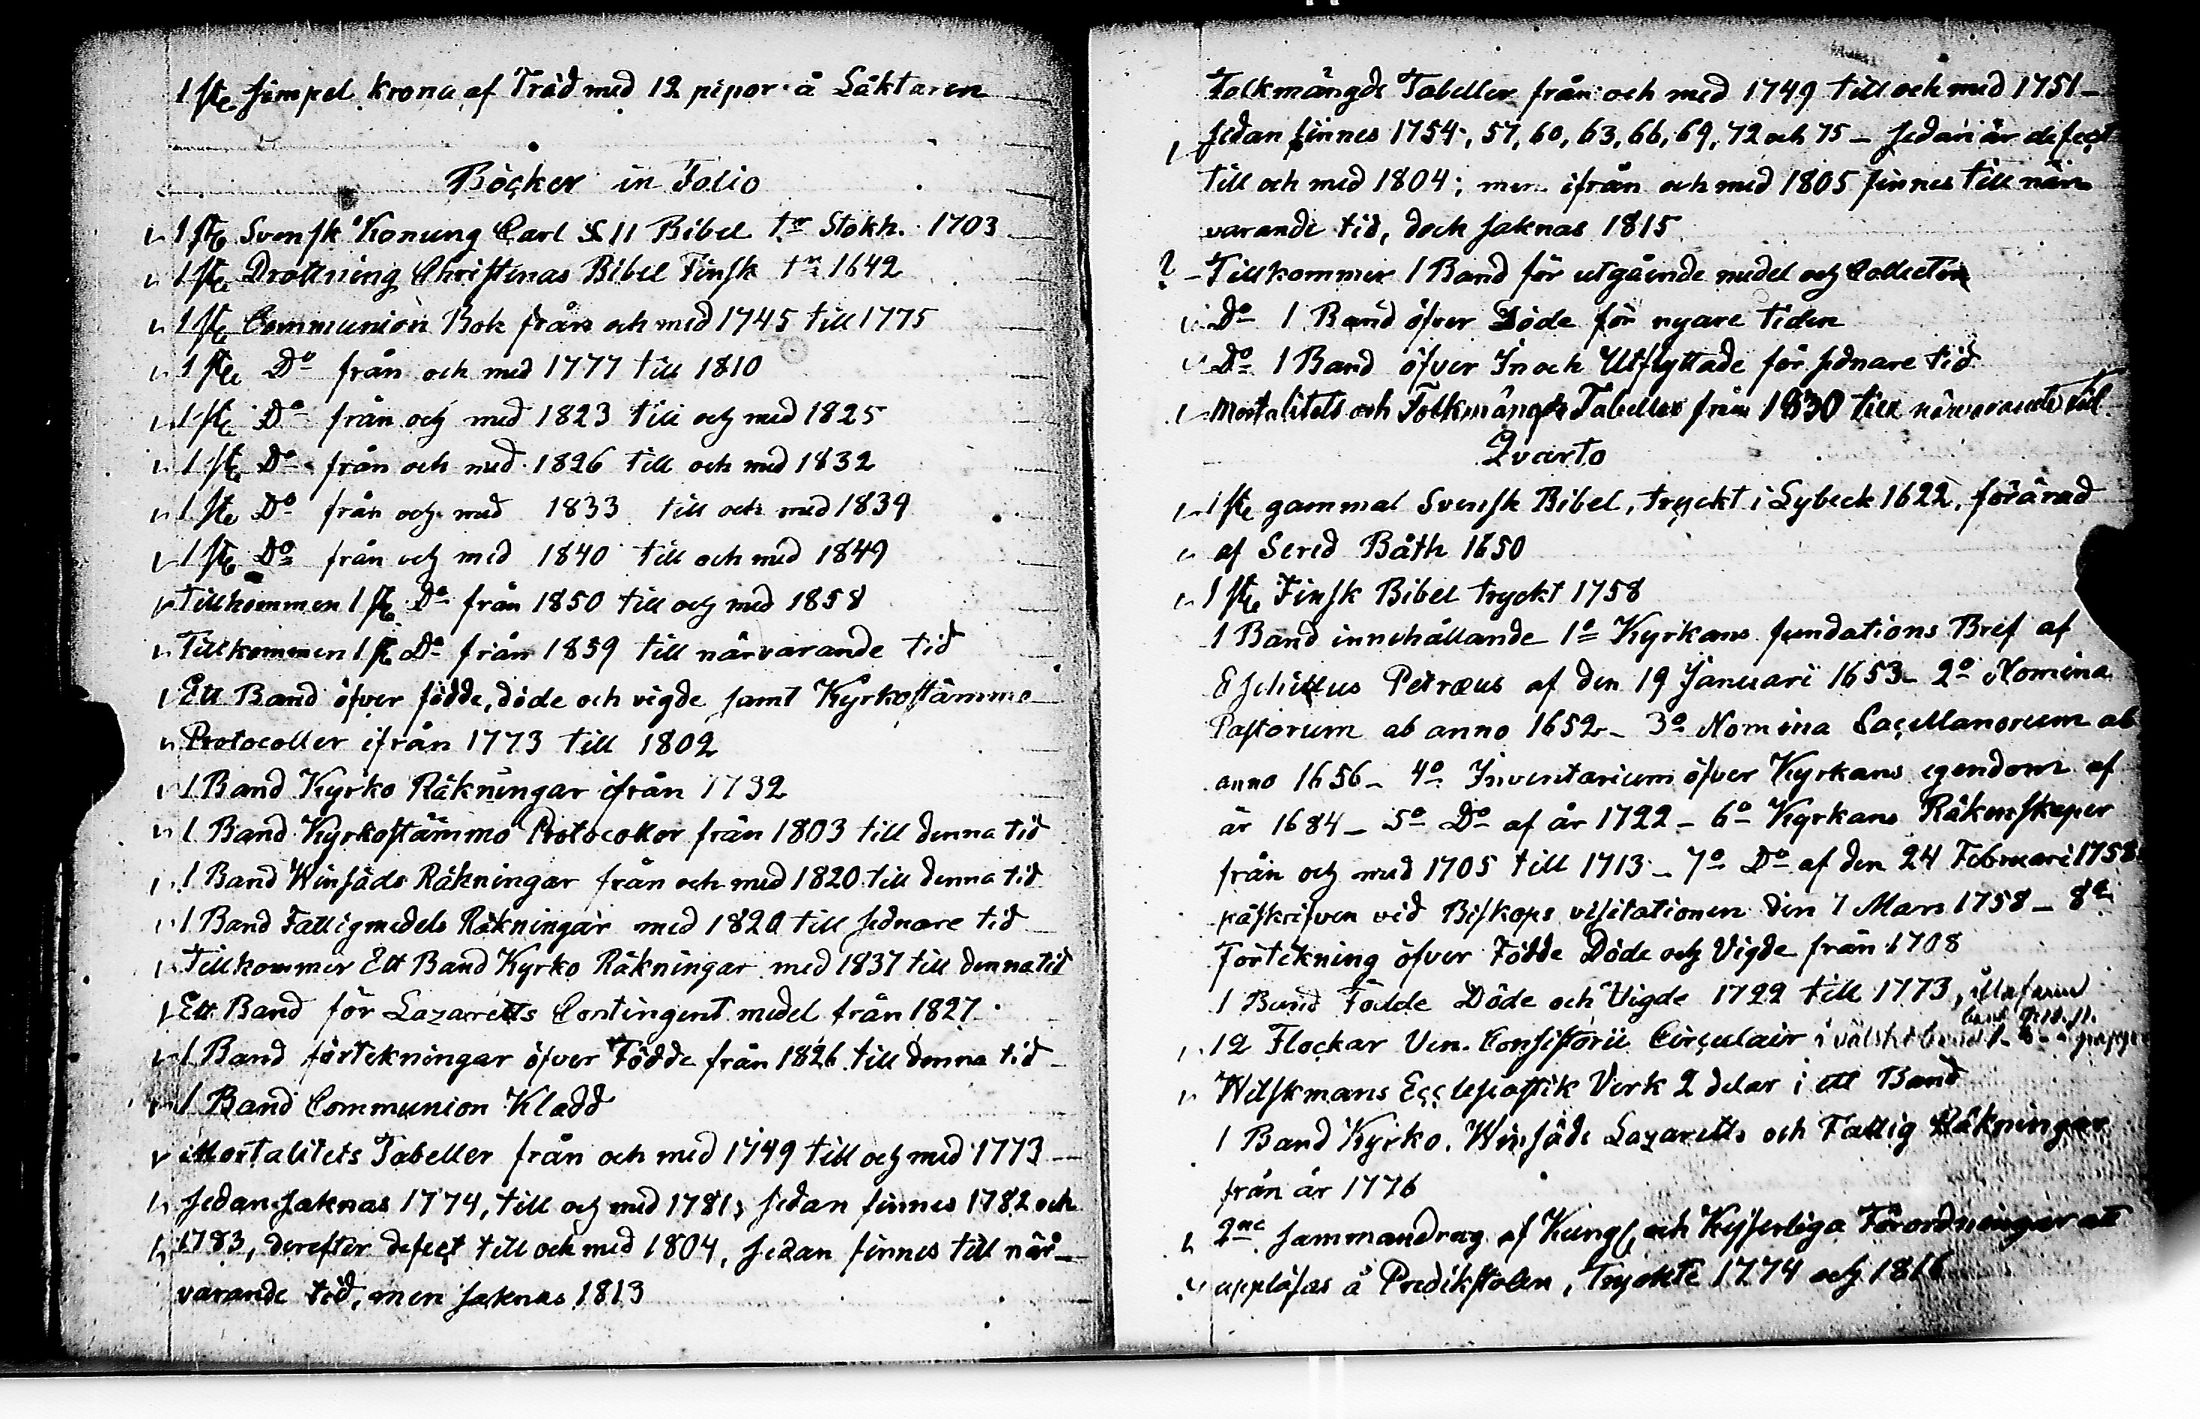 1 ste simpel krona af Träd med 12 pipor å Läktaren
Böcker in Folio
1 ste Svensk Konung Carl XII Bibel tr. Stokh. 1703
1 ste Drottning Christinas Bibel Finsk tr. 1642
1 ste Communion Bok från och med 1745 till 1775
1 ste Do från och med 1777 till 1810
1 ste Do från och med 1823 till och med 1825
1 ste Do från och med 1826 till och med 1832
1 ste Do från och med 1833 till och med 1839
1 ste Do från och med 1840 till och med 1849
Tillkommen 1 ste Do från 1850 till och med 1858
Tillkommen 1 st Do från 1859 till närvarande tid
Ett Band öfver födde, döde och vigde samt Kyrkostämmo
Protocoller ifrån 1773 till 1802
1 Band Kyrko Räkningar ifrån 1732
1 Band Kyrkostämmo Protocoller från 1803 till denna tid
1 Band Winsäds Räkningar från och med 1820 till denna tid
1 Band Fattigmedels Räkningar med 1820 till sednare tid
Tillkommer Ett Band Kyrko Räkningar med 1837 till denna tid
Ett Band för Lazaretts Contingent medel från 1827.
1 Band förtekningar öfver Födde från 1826 till denna tid
1 Band Communion Kladd
Mortalitets Tabeller från och med 1749 till och med 1773
sedan saknas 1774, till och med 1781, sedan finnes 1782 och
1783, derefter defect till och med 1804, sedan finnes till när-
varande tid, men saknas 1813
Folkmängds Tabeller från och med 1749 till och med 1751-
sedan finnes 1754, 57, 60, 63, 66, 69, 72 och 75 - sedan är defect
till och med 1804; men ifrån och med 1805 finnes till när-
varande tid, dock saknas 1815
? - Tillkommer 1 Band för utgående medel och Collecter
Do 1 Band öfver Döde för nyare tiden
Do 1 Band öfver In och Utflyttade för sednare tid
Mortalitets och Folkmängds Tabeller från 1830 till närvarande tid
Qvarto
1 ste gammal Svensk Bibel, tryckt i Lybeck 1622, förärad
af Sered Båth 1650
1 ste Finsk Bibel tryckt 1758
1 Band innehållande 1o Kyrkans fundations Bref af
Eschillus Petræus af den 19 Januari 1653 - 2o Nomina
Pastorum ab anno 1652 - 3o Nomina Sacellanorum ab
anno 1656 - 4o Inventarium öfver Kyrkans egendom af
år 1684 - 5o Do af år 1722 - 6o Kyrkans Räkenskaper
från och med 1705 till 1713 - 7o Do af den 24 Februari 1758
påskrifven vid Biskops visitationen den 7 Mars 1758 - 8o
Förtekning öfver Födde Döde och Vigde från 1708
1 Band Födde Döde och Vigde 1722 till 1773,
12 Flockar Ven. Consistorii Circulair i
Wilskmans Ecclesiastik Verk 2 delar i ett Band
1 Band Kyrko, Winsäds Lazaretts och Fattig Räkningar
från år 1776
2ne Sammandrag af Kungl. och Kejserliga Förordningar att
uppläsas å Predikstolen, Tryckte 1774 och 1816